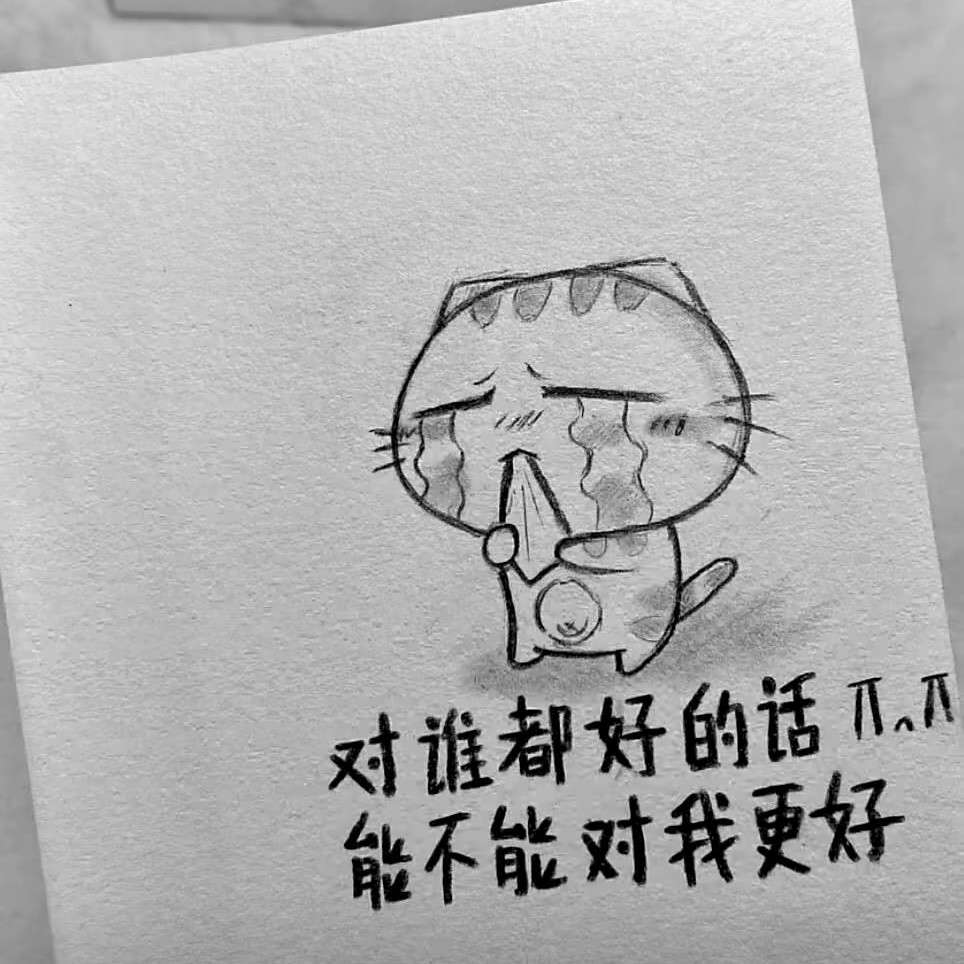 对谁都好的话 ㄫ^ㄫ
能不能对我更好